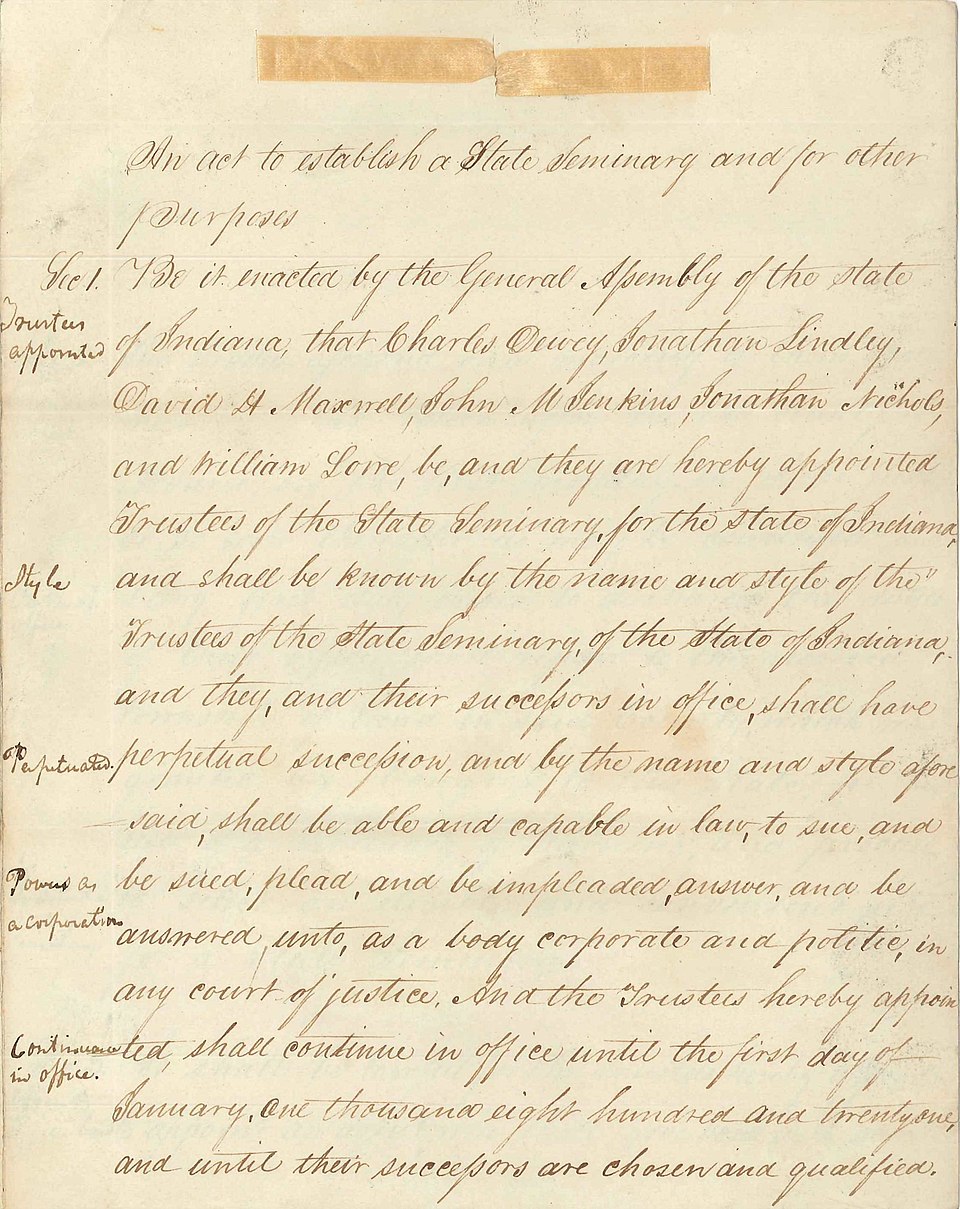 An act to establish a State Seminary and for other
Purposes
Sec 1. Be it enacted by the General Assembly of the state
Trustees
appointed
of Indiana, that Charles Dewey, Jonathan Lindley,
David H Maxwell, John M Jenkins, Jonathan Nichols,
and William Lowe, be, and they are hereby appointed
Trustees of the State Seminary, for the state of Indiana,
Style
and shall be known by the name and style of the "
Trustees of the State Seminary, of the State of Indiana,
and they, and their successors in office, shall have
Perpetuated.
perpetual succession, and by the name and style afore
said, shall be able and capable in law, to sue, and
Powers as
a corporation
be sued, plead, and be impleaded, answer, and be
answered, unto, as a body corporate and politic, in
any court of justice. And the Trustees hereby appoin
Continuance
in office.
ted, shall continue in office until the first day of
January, one thousand eight hundred and twenty one,
and until their successors are chosen and qualified.